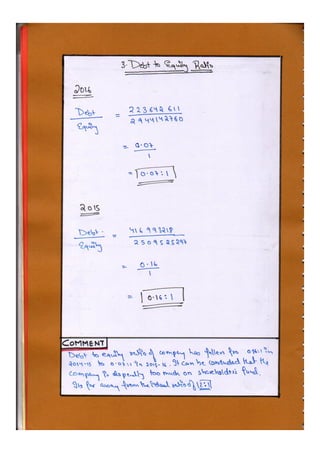 3. Debt to Equity Ratio
2016
Debt / Equity = 223642611 / 2944142760
= 0.07 / 1
= 0.07:1
2015
Debt / Equity = 416993218 / 2509525297
= 0.16 / 1
= 0.16:1
COMMENT
Debt to equity ratio of company has fallen fro 0.16:1 in
2014-15 to 0.07:1 in 2015-16. It can be concluded that the
company is too much on shareholders fund.
Its far away from the ideal ratio of